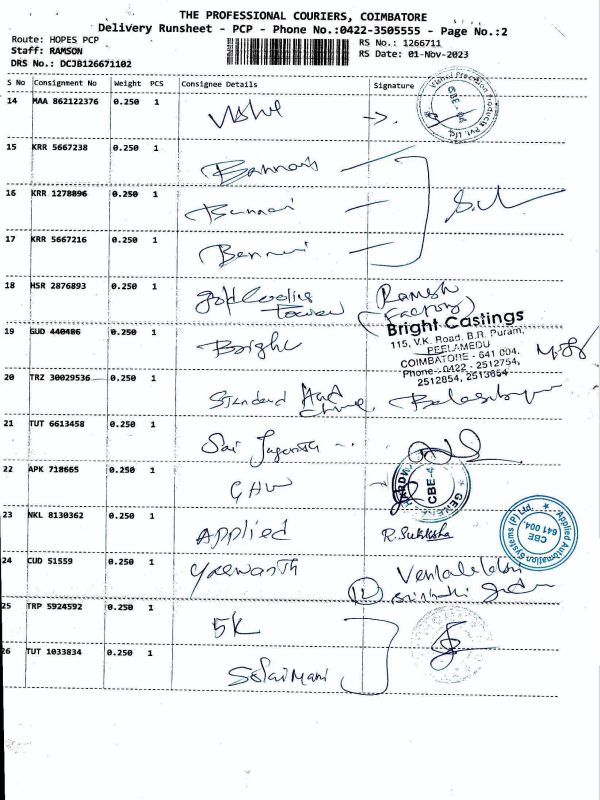 THE PROFESSIONAL COURIERS, COIMBATORE
Delivery Runsheet - PCP - Phone No.:0422-3505555 - Page No.:2
Route: HOPES PCP
Staff: RAMSON
DRS No.: DCJB126671102
RS No.: 1266711
RS Date: 01-Nov-2023
S No Consignment No Weight PCS Consignee Details Signature
14 MAA 862122376 0.250 1
Vishal Precision Products Pvt. Ltd. CBE - 04
15 KRR 5667238 0.250 1 Bannari
16 KRR 1278896 0.250 1 Bannari
17 KRR 5667216 0.250 1 Bannari
18 HSR 2876893 0.250 1 Ramesh
(Factory)
19 GUD 440486 0.250 1 Bright
Bright Castings
115, V.K. Road, B.R. Puram,
PEELAMEDU
COIMBATORE - 641 004.
Phone: 0422 - 2512754,
2512854, 2513654
20 TRZ 30029536 0.250 1 Standard
21 TUT 6613458 0.250 1 Sai
22 APK 718665 0.250 1 GHW
HARDWARE CBE-4 GENERAL
23 NKL 8130362 0.250 1 Applied
Applied Automation Systems (P) Ltd. CBE 641 004
24 CUD 51559 0.250 1 Yaswanth
25 TRP 5924592 0.250 1 5K
26 TUT 1033834 0.250 1 Solaimani